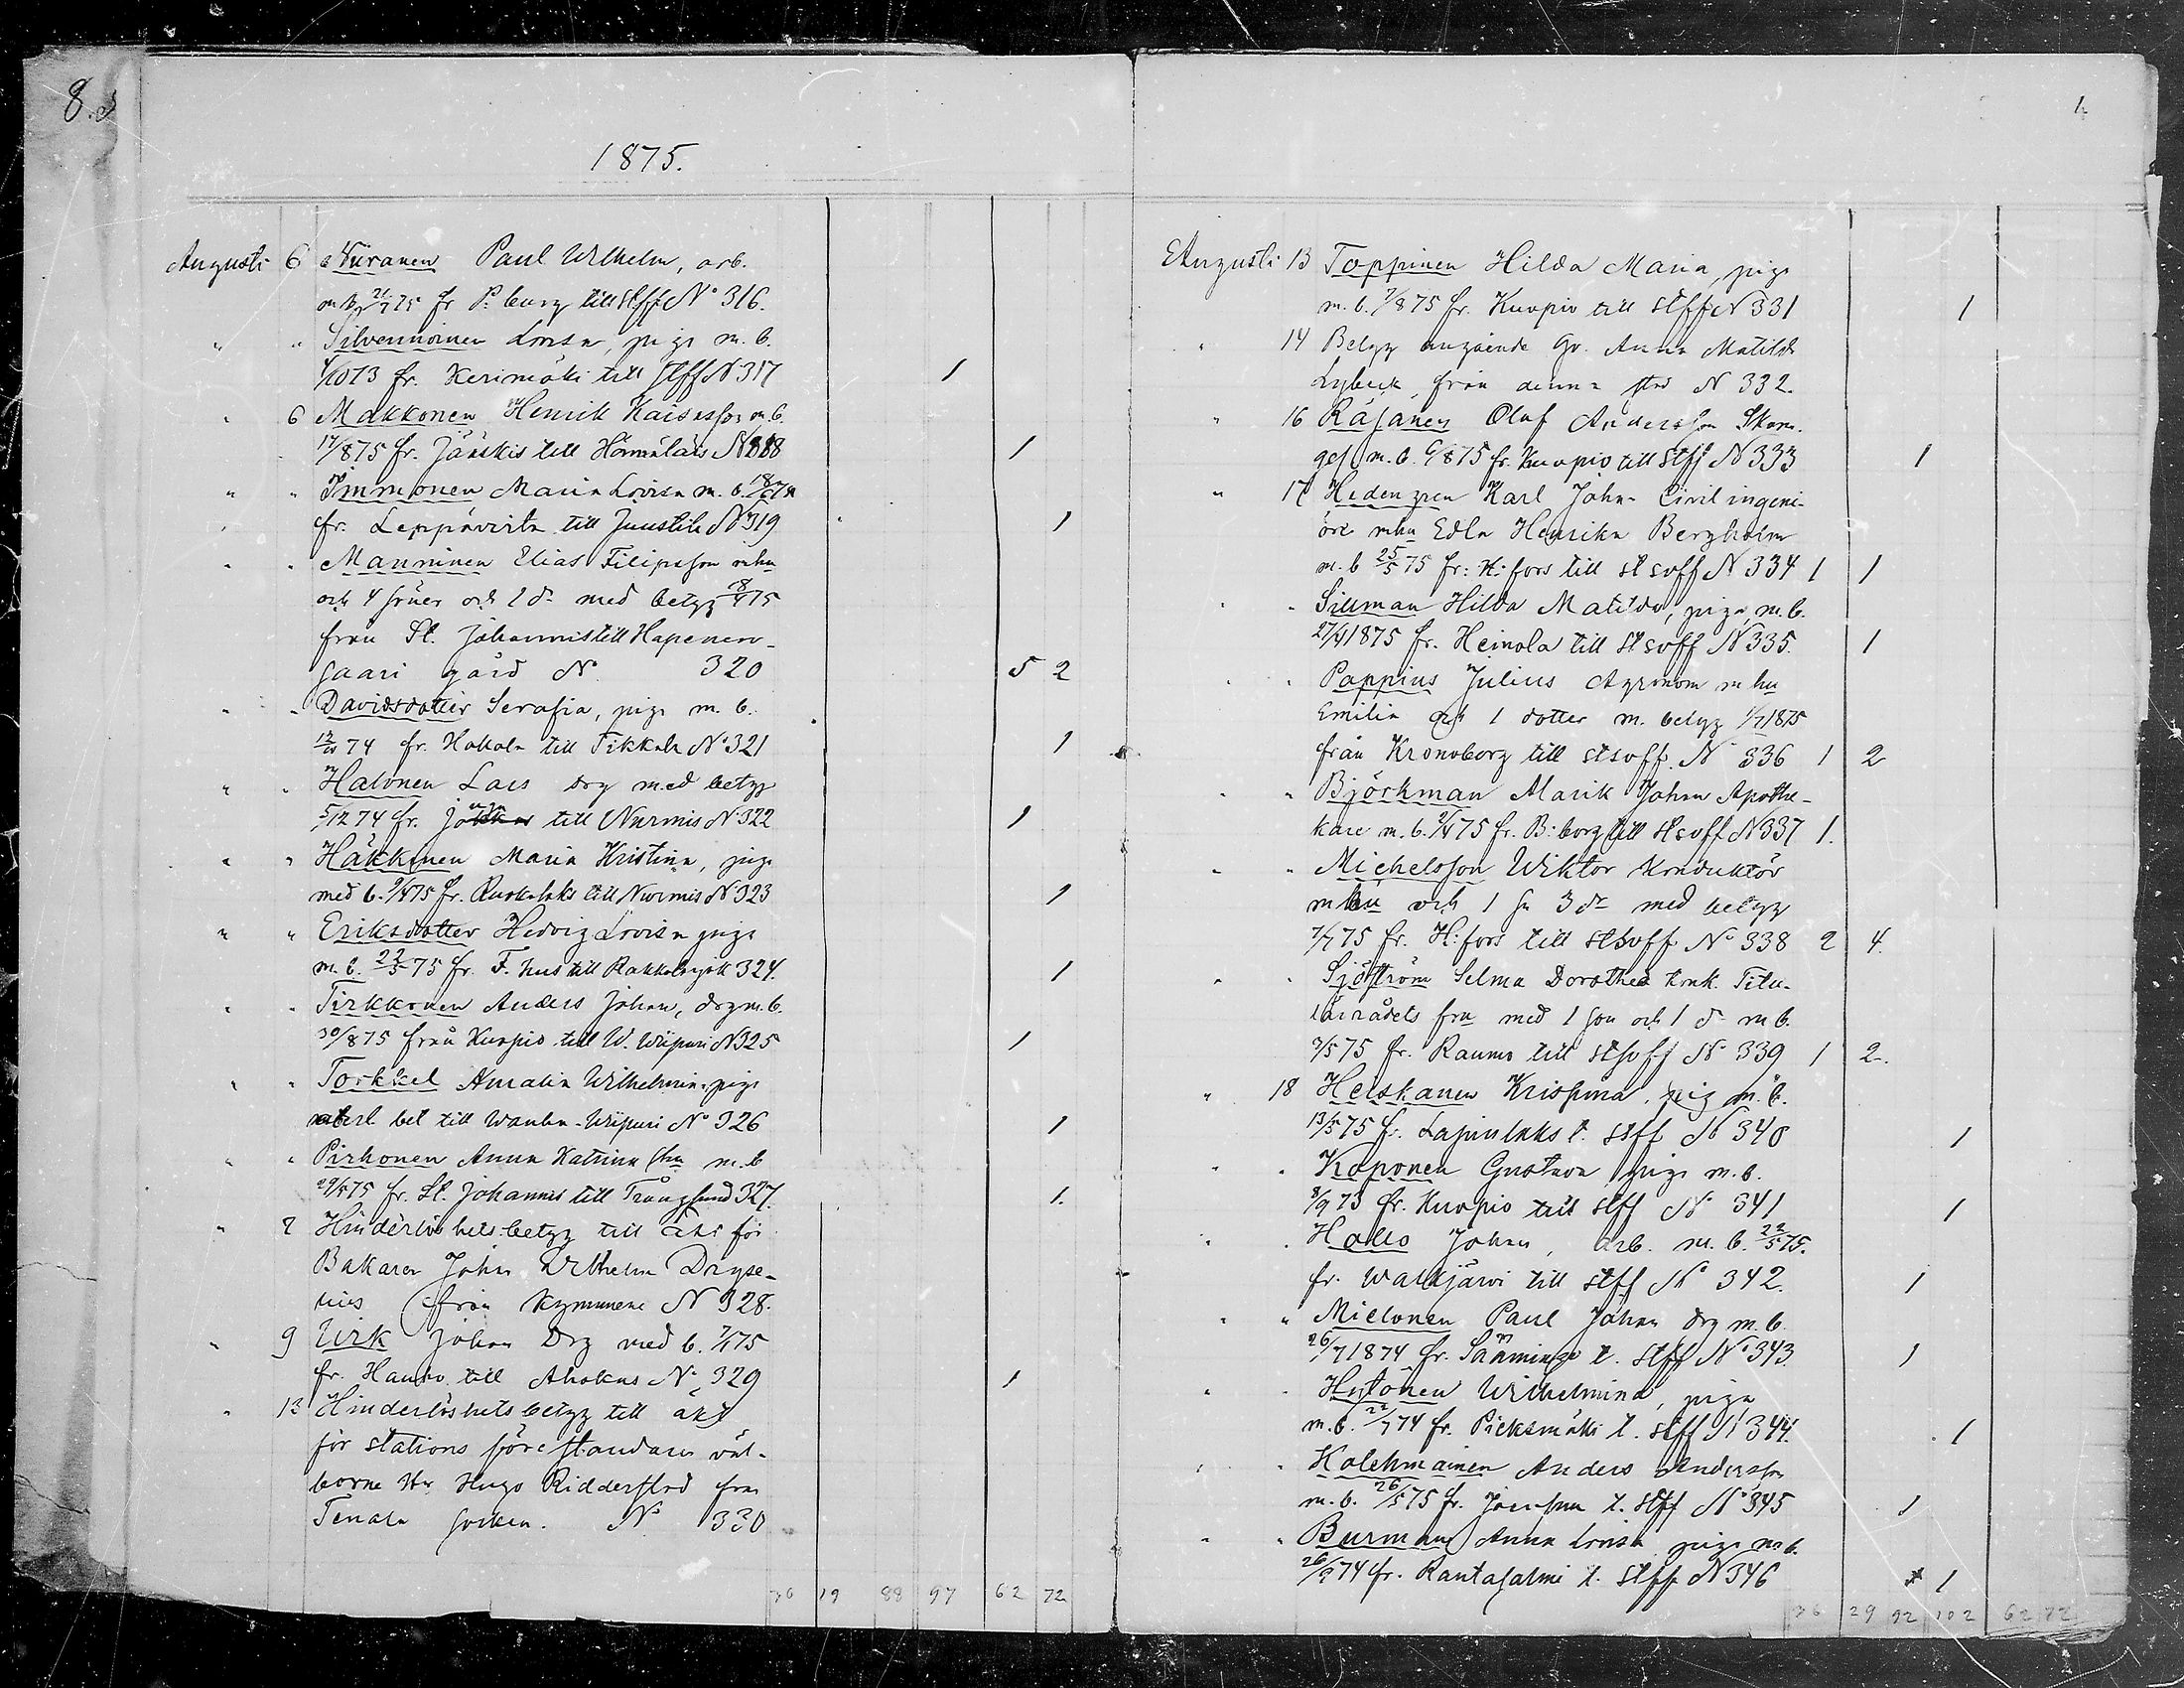 8.
1875.
Augusti 6 Nuranen Paul Wilhelm, arb.
m. b. 21/7 75 fr P:burg till stff No 316.
" " Silvennoinen Lovisa, piga m. b.
4/10 73 fr. Kerimäki till stff N 317 1
" 6 Makkonen Henrik Kaisasson m. b.
17/8 75 fr. Jääskis till N 318 1
" " Immonen Maria Lovisa m. b.
fr. Leppävirta till Juustila N 319 1
" " Manninen Elias Filipsson mhu
och 4 söner och 2 dr med betyg
från St. Johannis till Hapenen-
saari gård No 320 5 2
" " Davidsdotter Serafia, piga m. b.
74 fr. Hattola till Tikkala No 321 1
" " Halonen Lars drg med betyg
5/12 74 fr. till Nurmis N 322 1
" " Häkkinen Maria Kristina, piga
med b. 75 fr. Ruokolaks till Nurmis N 323 1
" " Eriksdotter Hedvig Lovisa piga
m. b. 75 fr. F. hus till 324. 1
" " Tirkkonen Anders Johan, drg m. b.
30/8 75 från Kuopio till W. Wiipuri N 325 1
" " Torkkel Amalia Wilhelmina piga
bet till Wanha-Wiipuri No 326 1
" " Pirhonen Anna Katrina m. b
29/5 75 fr. St. Johannis till Trångsund 327. 1.
" 7 Hinderlöshetsbetyg till äkt för
Bakaren Johan Wilhelm
från Kymmene N 328.
" 9 Zirk Johan Drg med b. 75
fr. till Ahokas No 329 1
" 13 Hinderlöshetsbetyg till äkt
för stations föreståndaren väl-
borne Hr Hugo Ridderstad från
Tenala socken. No 330
36 19 88 97 62 72
Augusti 13 Toppinen Hilda Maria, piga
m. b. 7/8 75 fr. Kuopio till stff N 331 1
" 14 Betyg angående Gv. Anna Matilda
Lybeck, från denna stad N 332.
" 16 Räsänen Olof Andersson Skom.
ges m. b. 9/8 75 fr. Kuopio till stff N 333 1
" 17 Hedengren Karl Johan Civil ingeni-
öre mhu Edla Henrika Bergholm
m. b 25/5 75 fr: H:fors till st soff N 334 1 1
" " Sillman Hilda Matilda, piga, m. b.
27/4 1875 fr. Heinola till st soff N 335. 1
" " Pappius Julius Agronom m hu
Emilia och 1 dotter m. betyg 1/7 1875
från Kronoborg till stsoff. No 336 1 2
" " Björkman Alarik Johan Apothe-
kare m. b. 75 fr. B:borg till stsoff N 337 1.
" " Michelsson Wiktor Konduktör
m hu och 1 sn 3 dr med betyg
7/7 75 fr. H:fors till stsoff No 338 2 4.
" " Sjöström Selma Dorothea enk. Titu-
lärrådets fru med 1 son och 1 dr m b.
3/5 75 fr. Raumo till stsoff No 339 1 2.
" 18 Heiskanen Krispina, pig m. b.
13/5 75 fr. Lapinlaks t. stff N 340 1
" " Koponen Gustava piga m. b.
8/9 73 fr. Kuopio till stff No 341 1
" " Hallo Johan, arb. m. b. 22/5 75.
fr. Walkjärvi till stff No 342. 1
" " Mielonen Paul Johan drg m. b.
26/7 1874 fr. Sääminge t. stff No 343. 1
" " Hytönen Wilhelmina, piga
m. b. 22/7 74 fr. Pieksmäki t. stff N 344. 1
" " Kolehmainen Anders Andersson
m. b. 26/5 75 fr. Joensuu t. stff No 345 1
" " Burman Anna Lovisa piga m b.
26/9 74 fr. Rantasalmi t. stff N 346 1
36 29 92 102 62 72